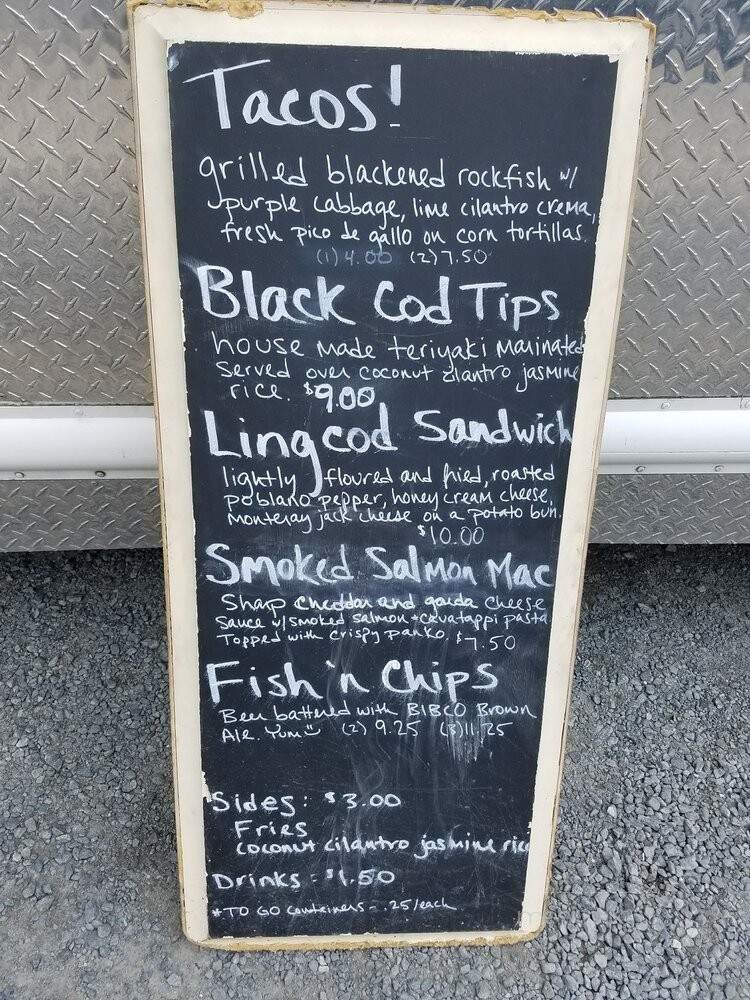 Tacos!
grilled blackened rockfish w/
purple cabbage, lime cilantro crema,
fresh pico de gallo on corn tortillas.
(1) 4.00 (2) 7.50
Black Cod Tips
house made teriyaki marinated
Served over coconut cilantro jasmine
rice. $9.00
Lingcod Sandwich
lightly floured and fried, roasted
poblano pepper, honey cream cheese,
Monteray jack cheese on a potato bun.
$10.00
Smoked Salmon Mac
Sharp cheddar and gouda cheese
Sauce w/ smoked salmon + cavatappi pasta
Topped with crispy panko. $7.50
Fish 'n Chips
Beer battered with BIBCO Brown
Ale. Yum (2) 9.25 (3) 11.25
Sides: $3.00
Fries
coconut cilantro jasmine rice
Drinks - $1.50
*TO GO containers - .25/each